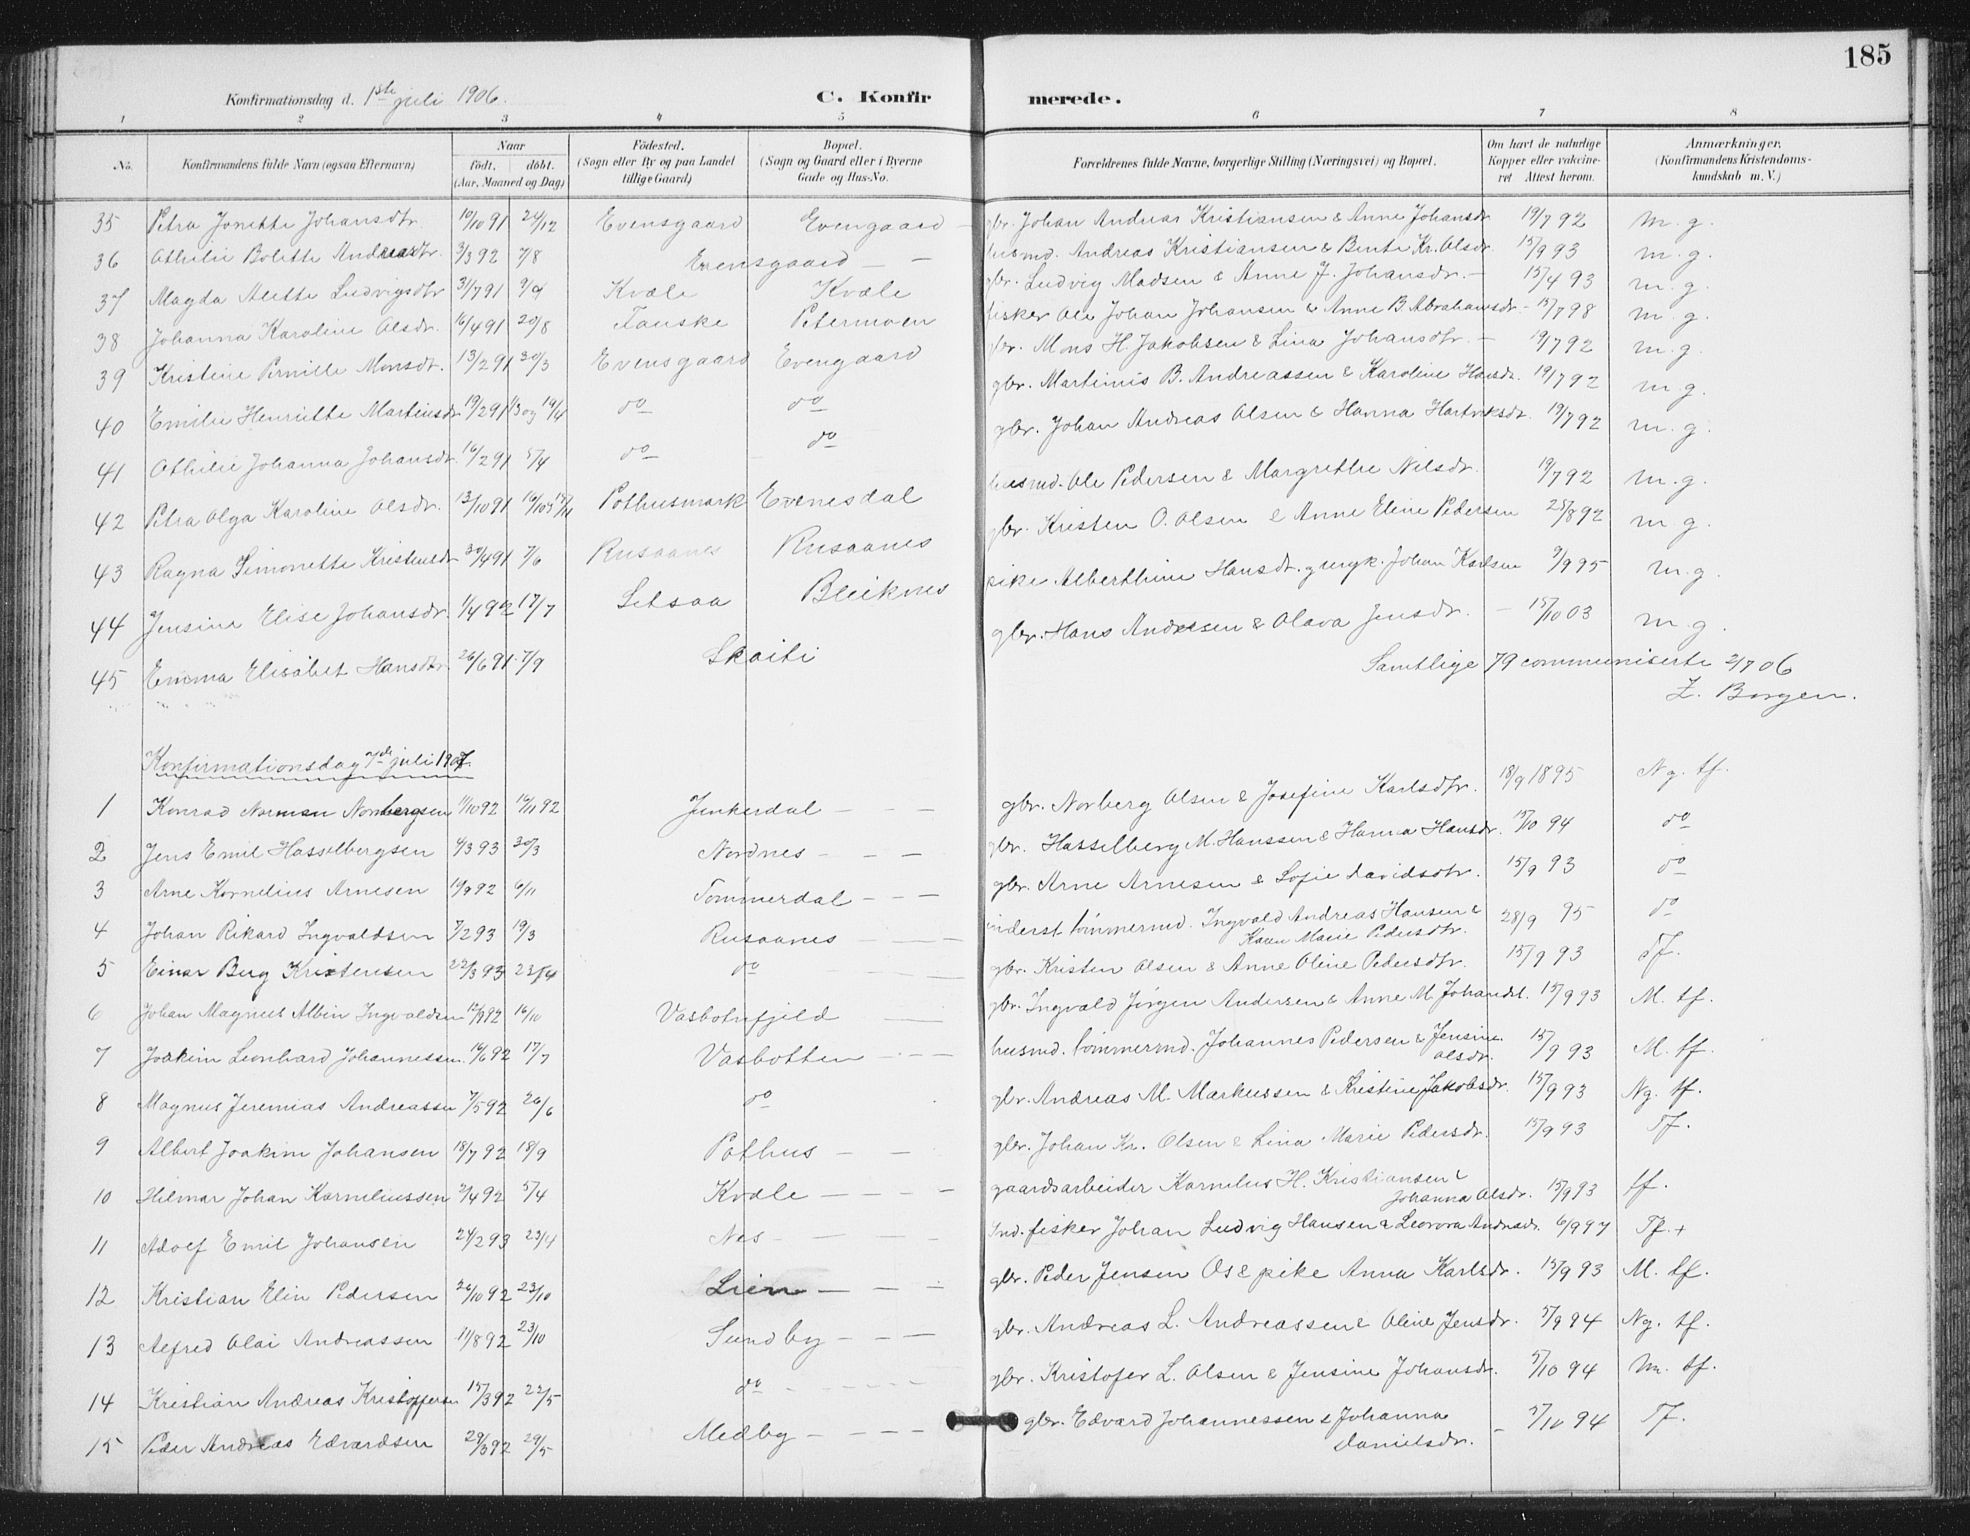 185
Konfirmationsdag d. 1ste juli 1906.
C. Konfirmerede.
1 2 3 4 5 6 7 8
No. Konfirmandens fulde Navn (ogsaa Efternavn) Naar født. døbt. (Aar, Maaned og Dag) Fødested. (Sogn eller By og paa Landet tillige Gaard) Bopæl. (Sogn og Gaard eller i Byerne Gade og Hus-No. Forældrenes fulde Navne, borgerlige Stilling (Næringsvei) og Bopæl. Om havt de naturlige Kopper eller vakcineret Attest herom. Anmærkninger. (Konfirmandens Kristendomskundskab m. V.)
35 Petra Jonette Johansdtr. 10/10 91 26/12 Evensgaard Evengaard gbr. Johan Andreas Kristiansen & Anne Johansdr 19/7 92 m. g.
36 Othilie Bolette Andreasdtr. 3/3 92 7/8 Evensgaard — — husmd. Andreas Kristiansen & Bente Kr. Olsdr. 15/9 93 m. g.
37 Magda Alette Ludvigsdtr 31/7 91 9/9 Kvæle Kvæle gbr. Ludvig Madsen & Anne J. Johansdr. — 15/4 93 m. g.
38 Johanna Karoline Olsdr. 16/4 91 20/8 Fauske Petermoen fisker Ole Johan Johansen & Anne B. Abrahamsdr - 15/7 98 m. g.
39 Kristine Pernille Monsdr. 13/2 91 30/3 Evensgaard Evengaard gbr. Mons H. Jakobsen & Lina Johansdtr. — 19/7 92 m. g.
40 Emilie Henriette Martinsdr 19/2 91 1/3 og 19/4 do do gbr. Martinus B. Andreassen & Karoline Hansdr. 19/7 92 m. g.
41 Othilie Johanna Johansdr. 16/2 91 5/4 do do gbr. Johan Andreas Olsen & Hanna Hartviksdr. 19/7 92 m. g.
42 Petra Olga Karoline Olsdr. 13/10 91 Pothusmark Evenesdal husmd. Ole Pedersen & Margrethe Nilsdr. 19/7 92 m. g.
43 Ragna Simonette Kristensdr 30/4 91 7/6 Rusaanes Rusaanes gbr. Kristen O. Olsen & Anne Eline Pedersen 25/8 92 m g.
44 Jensine Elise Johansdr. 1/4 92 17/7 Setsaa Bleiknes pike Alberthine Hansdr. g. Johan Karlsen 9/9 95 m. g.
45 Emma Elisabet Hansdtr 26/6 91 7/9 Skaiti gbr. Hans Andresen & Olava Jensdr. — 15/10 03 m. g.
Samtlige 79 communiserte 2/7 06
Z. Borgen.
Konfirmationsdag 7de juli 1907.
1 Konrad Norman Norbergsen 1/10 92 12/11 92 Junkerdal — — — gbr. Norberg Olsen & Josefine Karlsdtr. 18/9 1895 Ng. tf.
2 Jens Emil Hasselbergsen 4/3 93 30/3 Nordnes - — — gbr. Hasselberg M. Hanssen & Hanna Hansdr. 15/10 94 do
3 Arne Kornelius Arnesen 19/9 92 6/11 Tømmerdal - - — gbr. Arne Arnesen & Sofie Davidsdtr. 15/9 93 do
4 Johan Rikard Ingvaldsen 7/2 93 19/3 Rusaanes — — — inderst tømmermd. Ingvald Andreas Hansen & Karen Marie Pedersdtr. 28/9 95 do
5 Einar Berg Kristensen 22/3 93 23/4 do gbr. Kristen Olsen & Anne Oline Pedersdtr. 15/9 93 tf.
6 Johan Magnus Albin Ingvaldsen 12/9 92 16/10 Vasbotnfjeld — gbr. Ingvald Jørgen Andersen & Anne M. Johansdt. 15/9 93 M. tf.
7 Joakim Leonhard Johannessen. 16/6 92 17/7 Vasbotten - - — husmd. tømmermd. Johannes Pedersen & Jensine Olsdr. 15/9 93 M. tf.
8 Magnus Jeremias Andreassen 7/5 92 26/6 do gbr. Andreas M. Markussen & Kristine Jakobsdr. 15/9 93 Ng. tf.
9 Albert Joakim Johansen 18/7 92 18/9 Pothus — — gbr. Johan Kr. Olsen & Lina Marie Pedersdr. 15/9 93 Tf.
10 Hilmar Johan Korneliussen 2/4 92 5/4 Kvæle — — — gaardsarbeider Kornelius H. Kristiansen & Johanna Olsdr. 15/9 93 tf.
11 Adolf Emil Johansen 24/2 93 23/4 Nes - — — Ind. fisker Johan Ludvig Hansen & Leonora Andrasdr. 6/9 97 Tf. +
12 Kristian Elin Pedersen 26/10 92 23/10 Lien — — - gbr. Peder Jensen Os & pike Anna Karlsdr. 15/9 93 M. tf.
13 Alfred Olai Andreassen 11/8 92 23/10 Sundby - - — gbr. Andreas L. Andreassen & Oline Jensdr. 5/9 94 Ng. tf.
14 Kristian Andreas Kristoffersen 15/3 92 22/5 do - - - - gbr. Kristofer L. Olsen & Jensine Johansdr. 5/10 94 M. tf.
15 Peder Andreas Edvardsen 29/3 92 29/5 Medby — - — — gbr. Edvard Johannessen & Johanna Danielsdr. — 5/10 94 Tf.